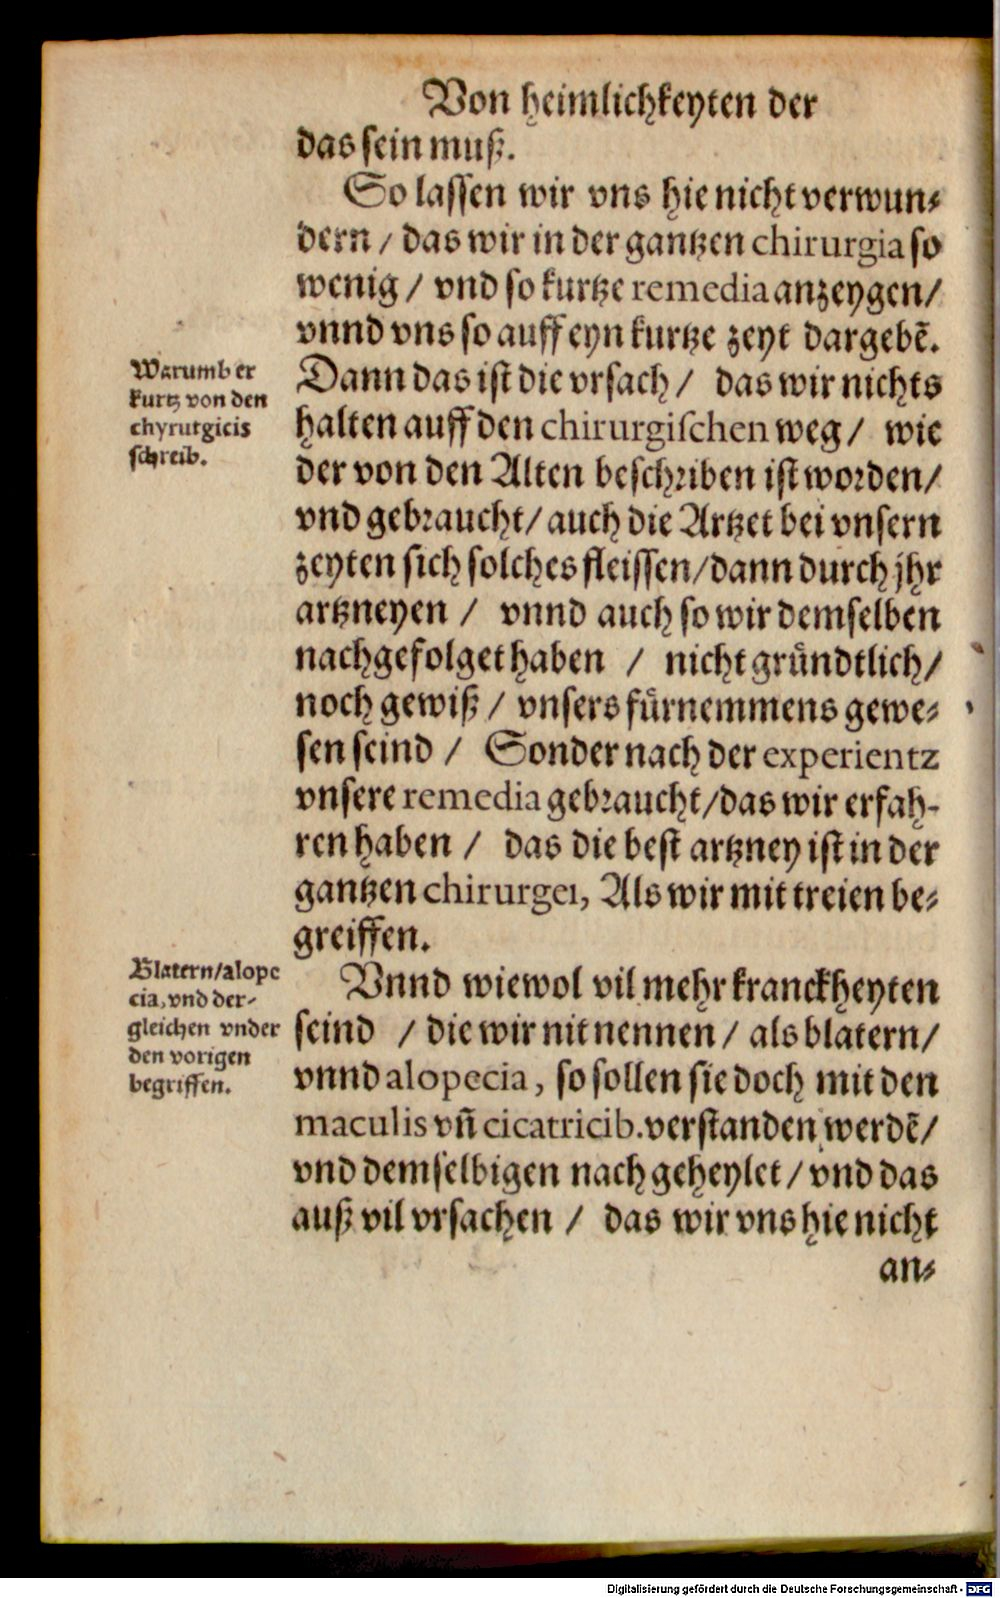 Von heimlichkeyten der
das sein muß.
So lassen wir vns hie nicht verwun⸗
dern / das wir in der gantzen chirurgia so
wenig / vnd so kurtze remedia anzeygen/
vnnd vns so auff eyn kurtze zeyt dargebẽ.
Warumb er
kurtz von den
chyrurgicis
schreib.
Dann das ist die vrsach / das wir nichts
halten auff den chirurgischen weg / wie
der von den Alten beschriben ist worden/
vnd gebraucht/ auch die Artzet bei vnsern
zeyten sich solches fleissen/dann durch jhr
artzneyen / vnnd auch so wir demselben
nachgefolget haben / nicht gründtlich/
noch gewiß / vnsers fürnemmens gewe⸗
sen seind / Sonder nach der experientz
vnsere remedia gebraucht/das wir erfah-
ren haben / das die best artzney ist in der
gantzen chirurgei, Als wir mit treien be⸗
greiffen.
Blatern/alope
cia, vnd der-
gleichen vnder
den vorigen
begriffen.
Vnnd wiewol vil mehr kranckheyten
seind / die wir nit nennen / als blatern/
vnnd alopecia, so sollen sie doch mit den
maculis vñ cicatricib. verstanden werdẽ/
vnd demselbigen nach geheylet / vnd das
auß vil vrsachen / das wir vns hie nicht
an⸗
Digitalisierung gefördert durch die Deutsche Forschungsgemeinschaft - DFG